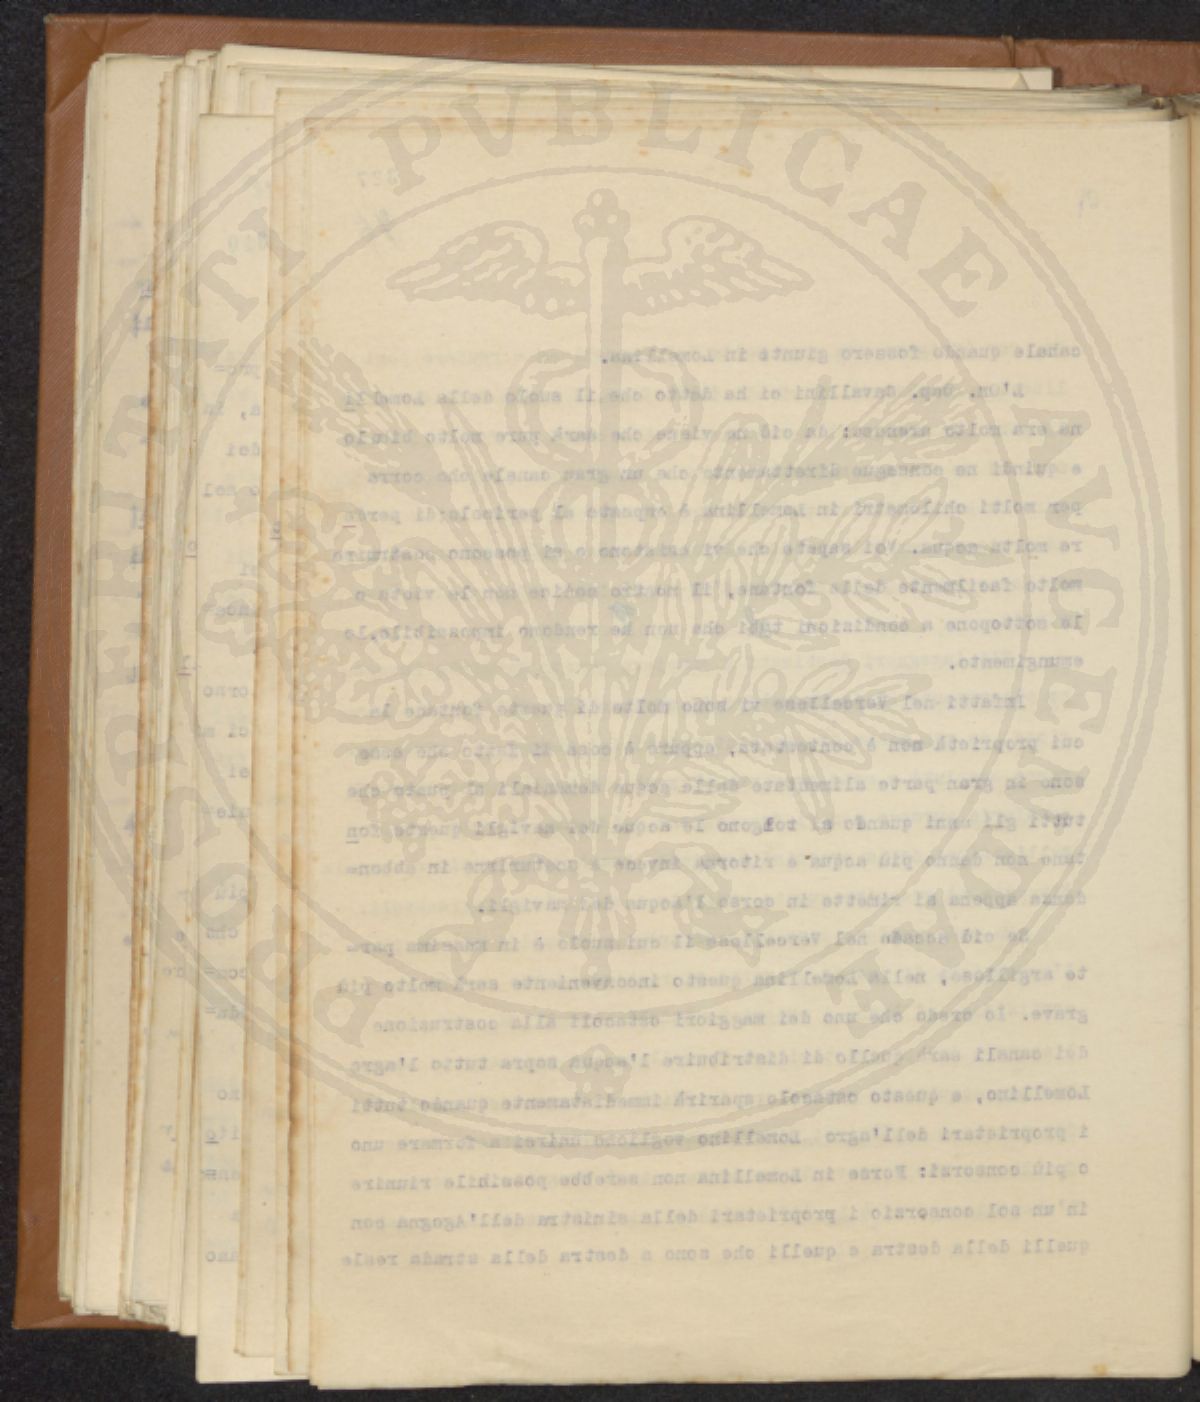 PROSPERITATI PUBLICAE AUGENDAE
327
canale quando fossero giunte in Lomellina.
L'On. Dep. Cavallini ci ha detto che il suolo della Lomelli
na era molto arenoso; da ciò ne viene che sarà pure molto bibulo
e quindi ne consegue direttamente che un gran canale che corra
per molti chilometri in Lomellina è esposto al pericolo di perde
re molta acqua. Voi sapete che vi esistono e si possono costruire
molto facilmente delle fontane, il nostro codice non le vieta o
le sottopone a condizioni tali che non ne rendono impossibile, lo
emungimento.
Infatti nel Vercellese vi sono molte di queste fontane la
cui proprietà non è contestata, eppure è cosa di fatto che esse
sono in gran parte alimentate dalle acque demaniali al punto che
tutti gli anni quando si tolgono le acque dei navigli queste fon
tane non danno più acqua e ritorna invece a scaturirne in abbon=
danza appena si rimette in corso l'acqua dei navigli.
Se ciò accade nel Vercellese il cui suolo è in massima par=
te argilloso, nella Lomellina questo inconveniente sarà molto più
grave. Io credo che uno dei maggiori ostacoli alla costruzione
dei canali sarà quello di distribuire l'acqua sopra tutto l'agro
Lomellino, e questo ostacolo sparirà immediatamente quando tutti
i proprietari dell'agro Lomellino vogliono unirsi a formare uno
o più consorzi: Forse in Lomellina non sarebbe possibile riunire
in un sol consorzio i proprietari della sinistra dell'Agogna con
quelli della destra e quelli che sono a destra della strada reale